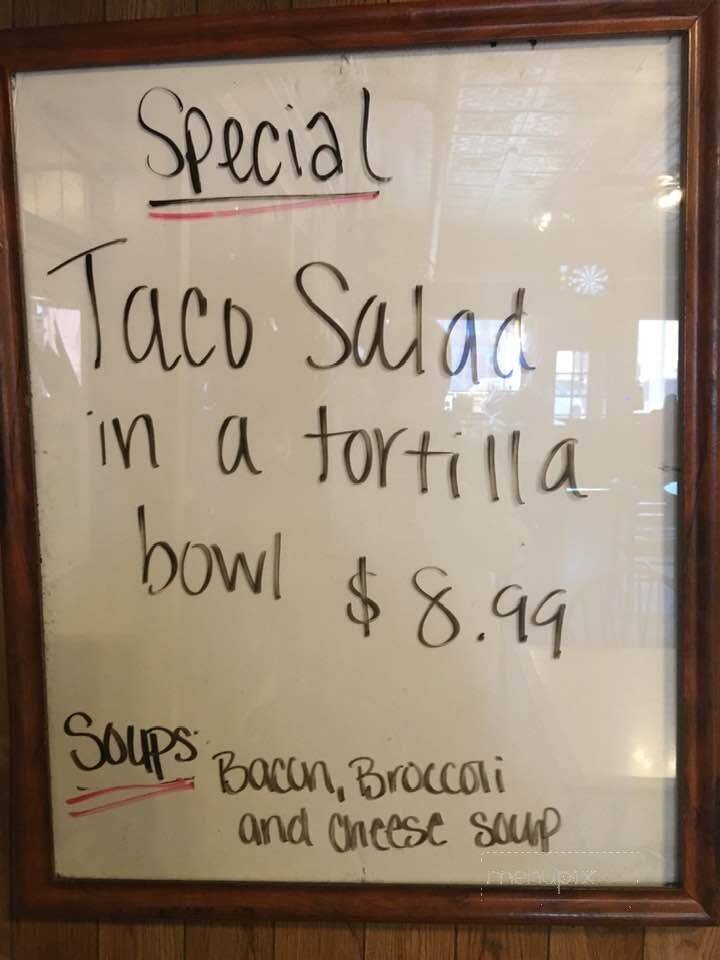 Special
Taco Salad
in a tortilla
bowl $8.99
Soups: Bacon, Broccoli
and cheese soup
menupix